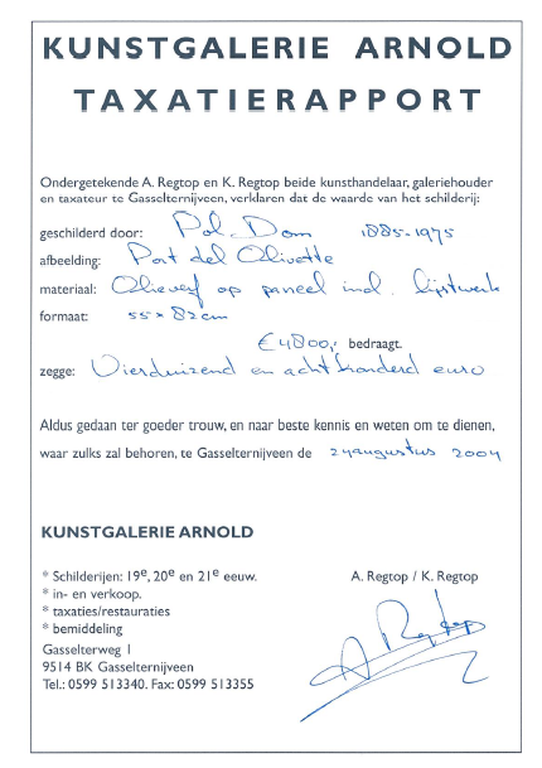 KUNSTGALERIE ARNOLD
TAXATIERAPPORT
Ondergetekende A. Regtop en K. Regtop beide kunsthandelaar, galeriehouder
en taxateur te Gasselternijveen, verklaren dat de waarde van het schilderij:
geschilderd door: Pol. Dom 1885-1975
afbeelding: Port del Olivette
materiaal: Olieverf op paneel incl. lijstwerk
formaat: 55 x 82 cm
€ 4800,- bedraagt.
zegge: Vierduizend en acht honderd euro
Aldus gedaan ter goeder trouw, en naar beste kennis en weten om te dienen,
waar zulks zal behoren, te Gasselternijveen de augustus 2004
KUNSTGALERIE ARNOLD
* Schilderijen: 19e, 20e en 21e eeuw.
* in- en verkoop.
* taxaties/restauraties
* bemiddeling
Gasselterweg 1
9514 BK Gasselternijveen
Tel.: 0599 513340. Fax: 0599 513355
A. Regtop / K. Regtop
A Regtop